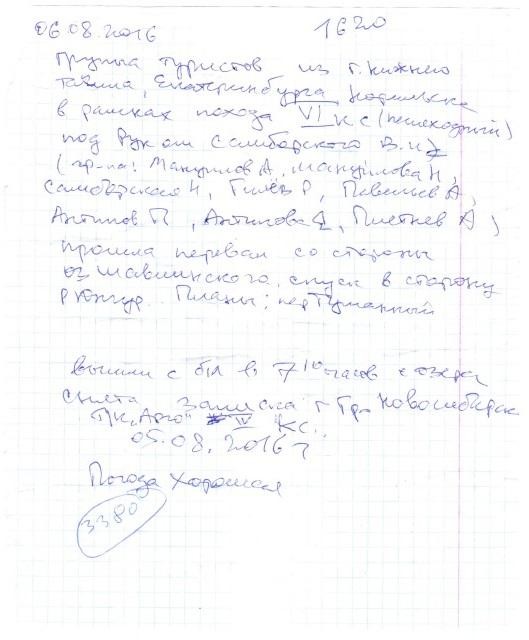 06.08.2016 16 20
Группа туристов из г. Нижнего
Тагила, Екатеринбурга, Норильска
в рамках похода VI КС (пешеходный)
под рук-ом Самборского В.
(гр-па: Манушлов А, Манушлова Н,
Самборская Н, Гилёв Р, А,
Антипов П, Антипова, Плетнев А)
прошла перевал со стороны
оз Шавлинского, спуск в сторону
р Юнгур. Планы: пер Туманный
Вышли с бив в 7 10 часов с озера
Снята записка т гр Новосибирск
"Арго" IV КС.
05.08.2016 г
Погода хорошая
3380